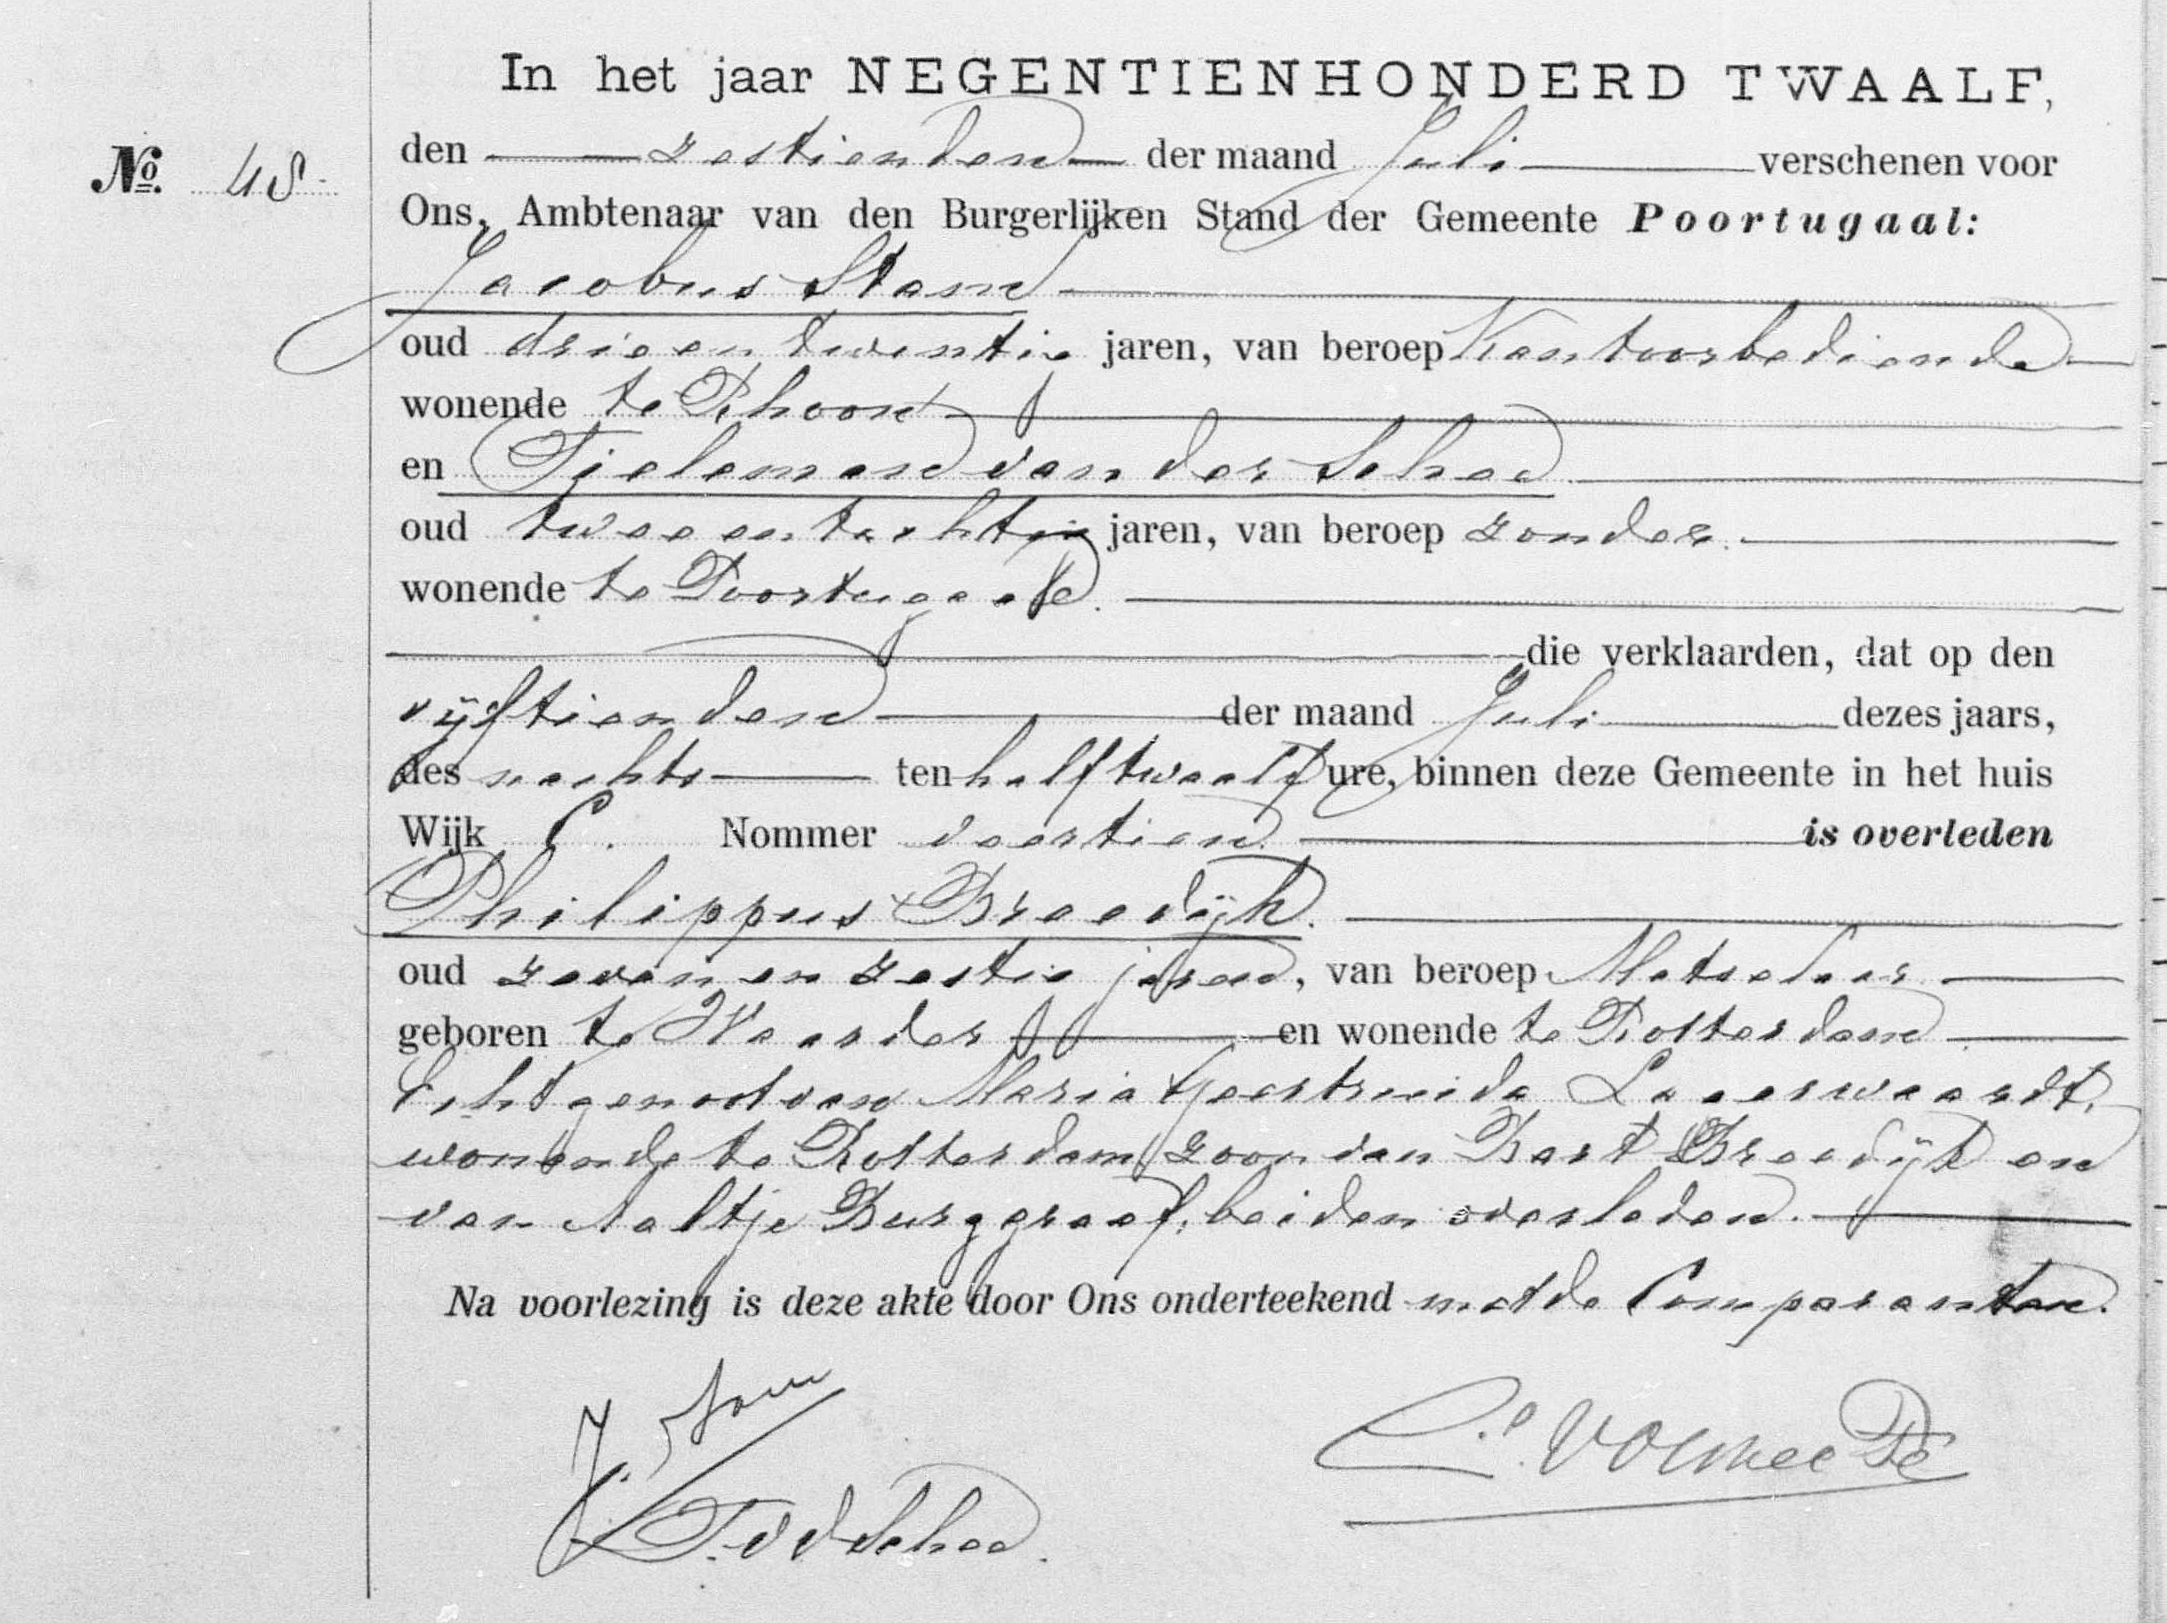 In het jaar NEGENTIENHONDERD TWAALF,
No. 48.
den zestienden der maand Juli verschenen voor
Ons, Ambtenaar van den Burgerlijken Stand der Gemeente Poortugaal:
Jacobus Stam
oud drieentwintig jaren, van beroep Kantoorbediende
wonende te Rhoon
en Tieleman van der Schee
oud tweeentachtig jaren, van beroep zonder.
wonende te Poortugaal.
die verklaarden, dat op den
vijftienden der maand Juli dezes jaars,
des nachts ten half twaalf ure, binnen deze Gemeente in het huis
Wijk C. Nommer veertien. is overleden
Philippus Breedijk.
oud zeven en zestig jaren, van beroep Metselaar
geboren te Waarder en wonende te Rotterdam
Echtgenoot van Maria Geertruida
wonende te Rotterdam zoon van Bart Breedijk en
van Aaltje Burggraaf, beiden overleden.
Na voorlezing is deze akte door Ons onderteekend met de Comparanten.
J. Stam
T. v d Schee.